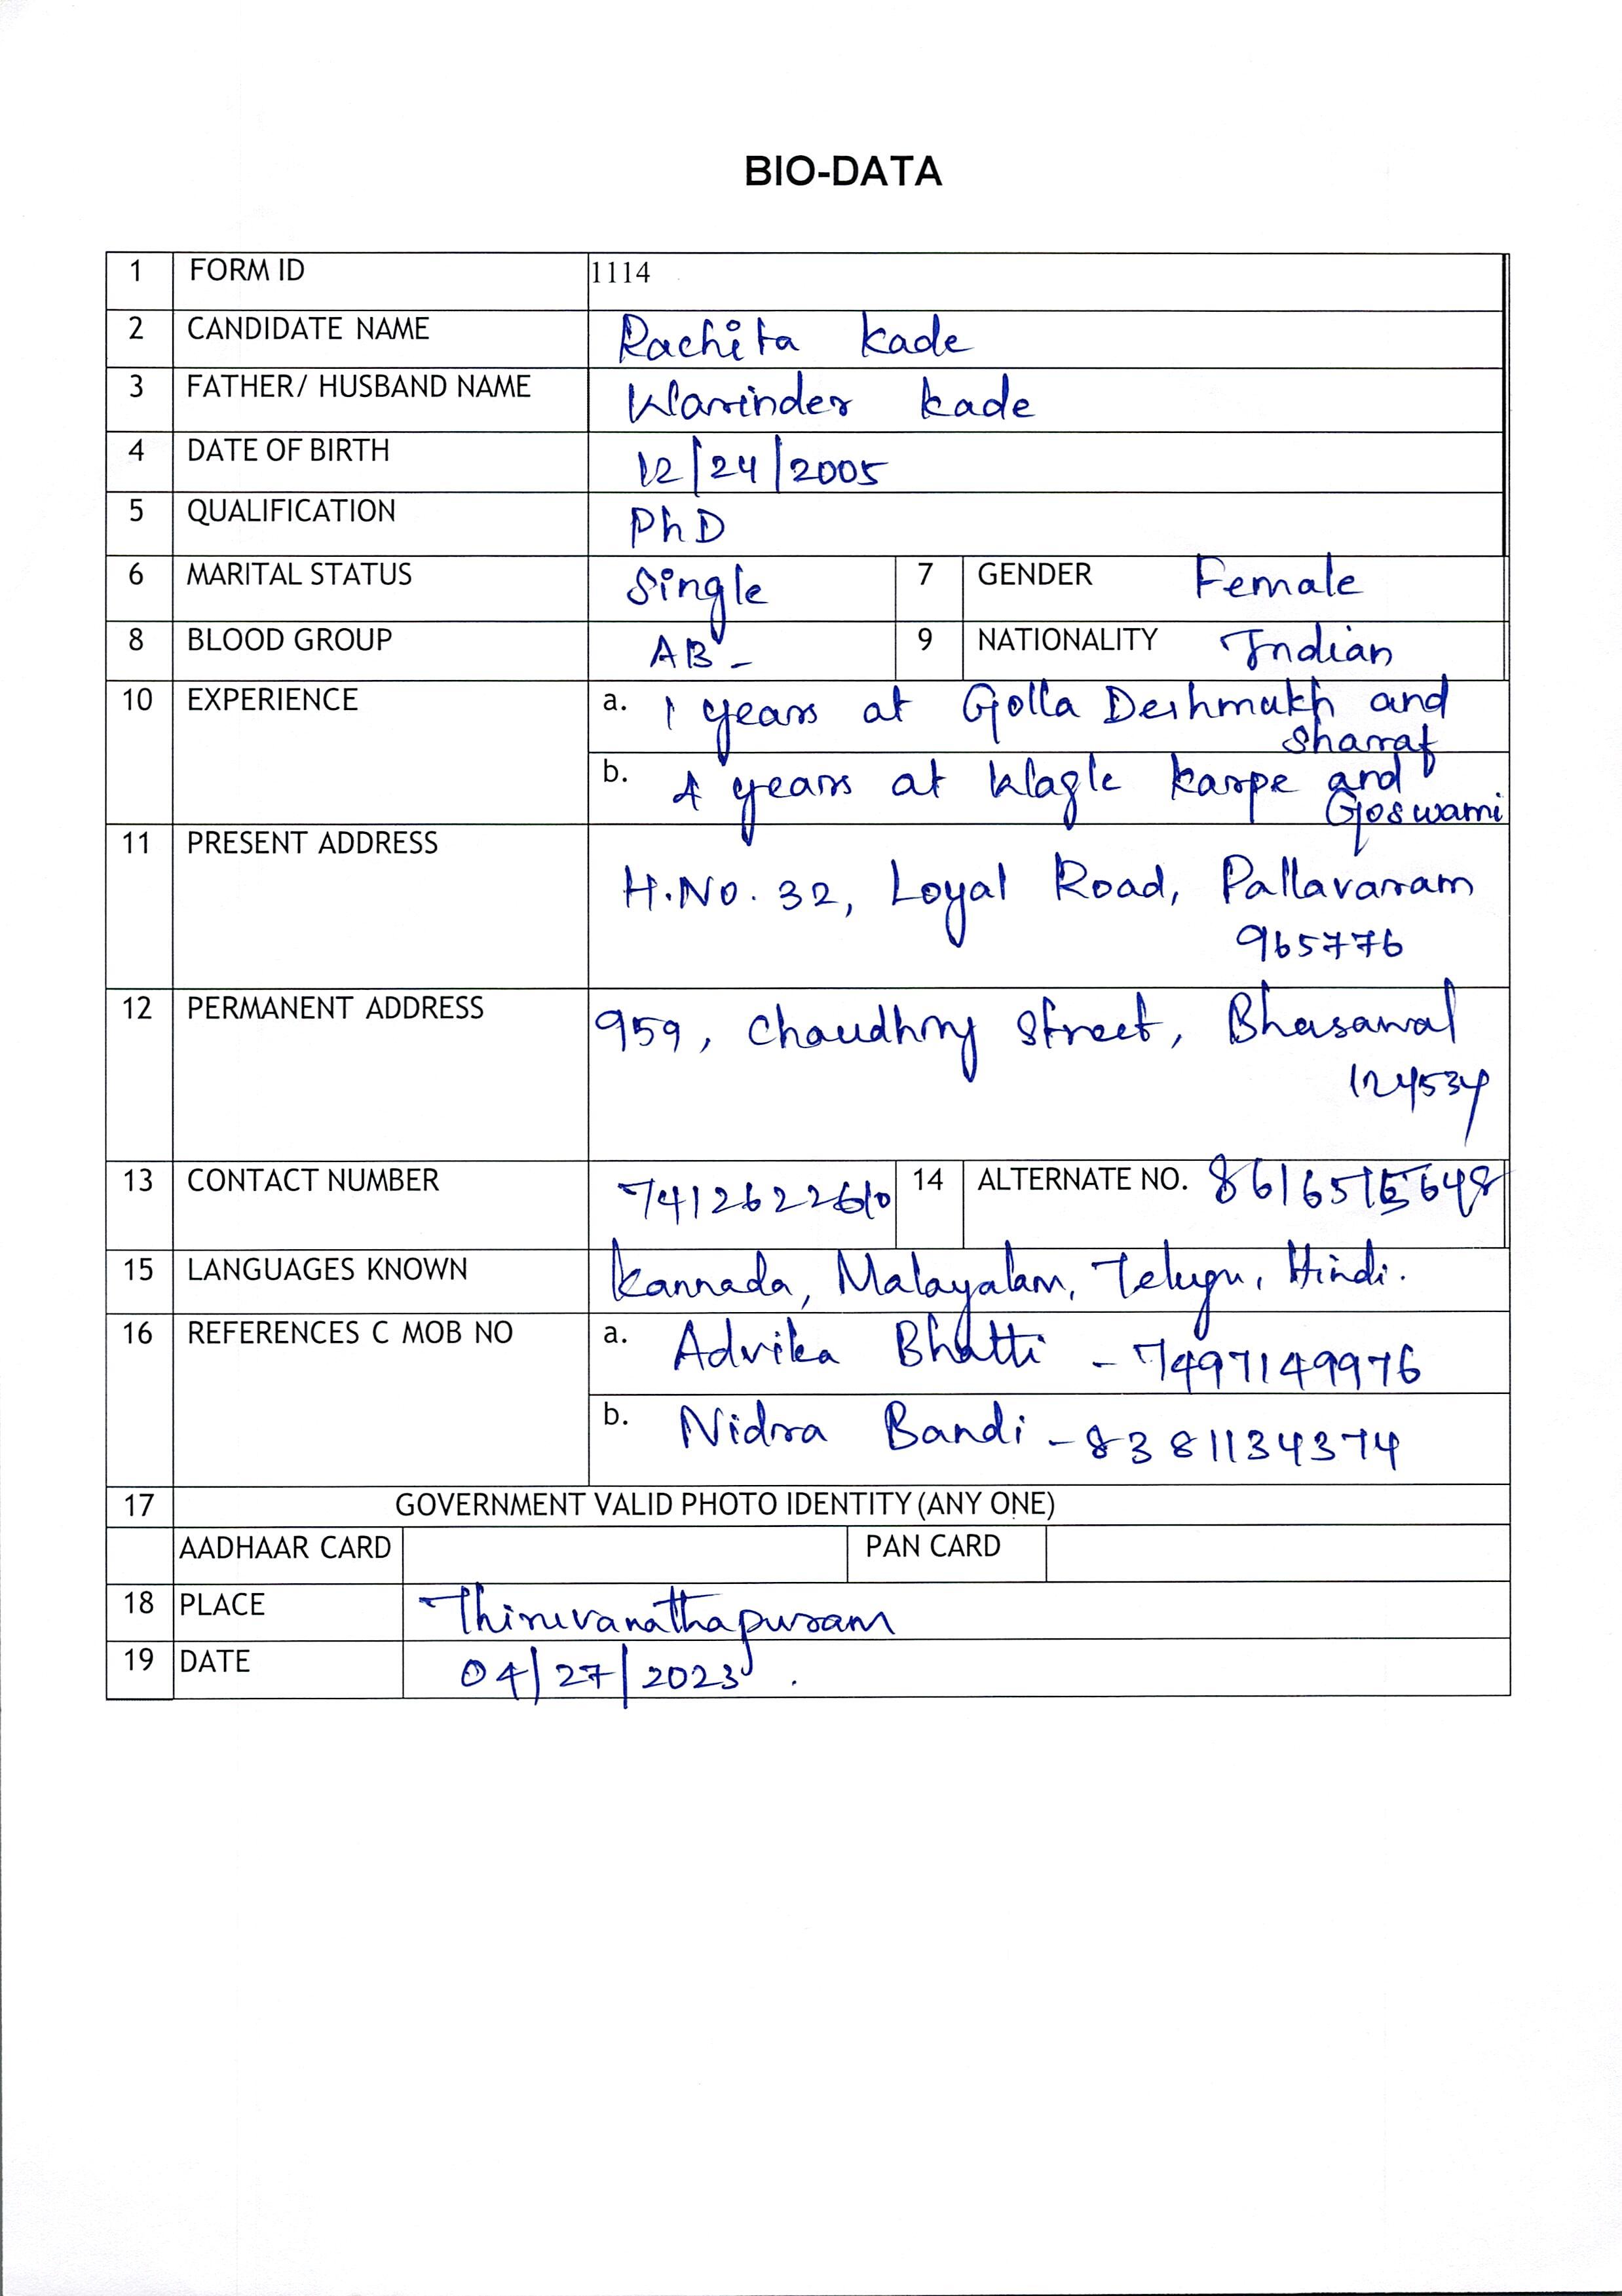 BIO-DATA
1 FORM ID 1114
2 CANDIDATE NAME Rachita Kade
3 FATHER/ HUSBAND NAME Warinder Kade
4 DATE OF BIRTH 12/24/2005
5 QUALIFICATION PhD
6 MARITAL STATUS Single 7 GENDER Female
8 BLOOD GROUP AB- 9 NATIONALITY Indian
10 EXPERIENCE a. 1 years at Golla Deshmukh and
Sharraf
b. 4 years at Wagle Karpe and
Goswami
11 PRESENT ADDRESS
H.No. 32, Loyal Road, Pallavaram
965776
12 PERMANENT ADDRESS 959, Chaudhry Street, Bhusawal
124534
13 CONTACT NUMBER 7412622610 14 ALTERNATE NO.
15 LANGUAGES KNOWN Kannada, Malayalam, Telugu, Hindi.
16 REFERENCES C MOB NO a. Advika Bhatti - 7497149976
b. Nidra Bandi - 8381134374
17 GOVERNMENT VALID PHOTO IDENTITY (ANY ONE)
AADHAAR CARD PAN CARD
18 PLACE Thiruvanathapuram
19 DATE 04/27/2023 .